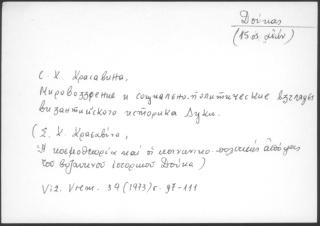 Δούκας
(15ος αἰών)
С. К. Красавина,
Мировоззрение и социально-политические взгляды
византийского историка Дуки.
(Σ. Κ. Κρασάβινα,
Ἡ κοσμοθεωρία καί οἱ κοινωνικο-πολιτικές ἀπόψεις
τοῦ βυζαντινοῦ ἱστορικοῦ Δούκα)
Viz. Vrem. 34 (1973) σ. 97-111